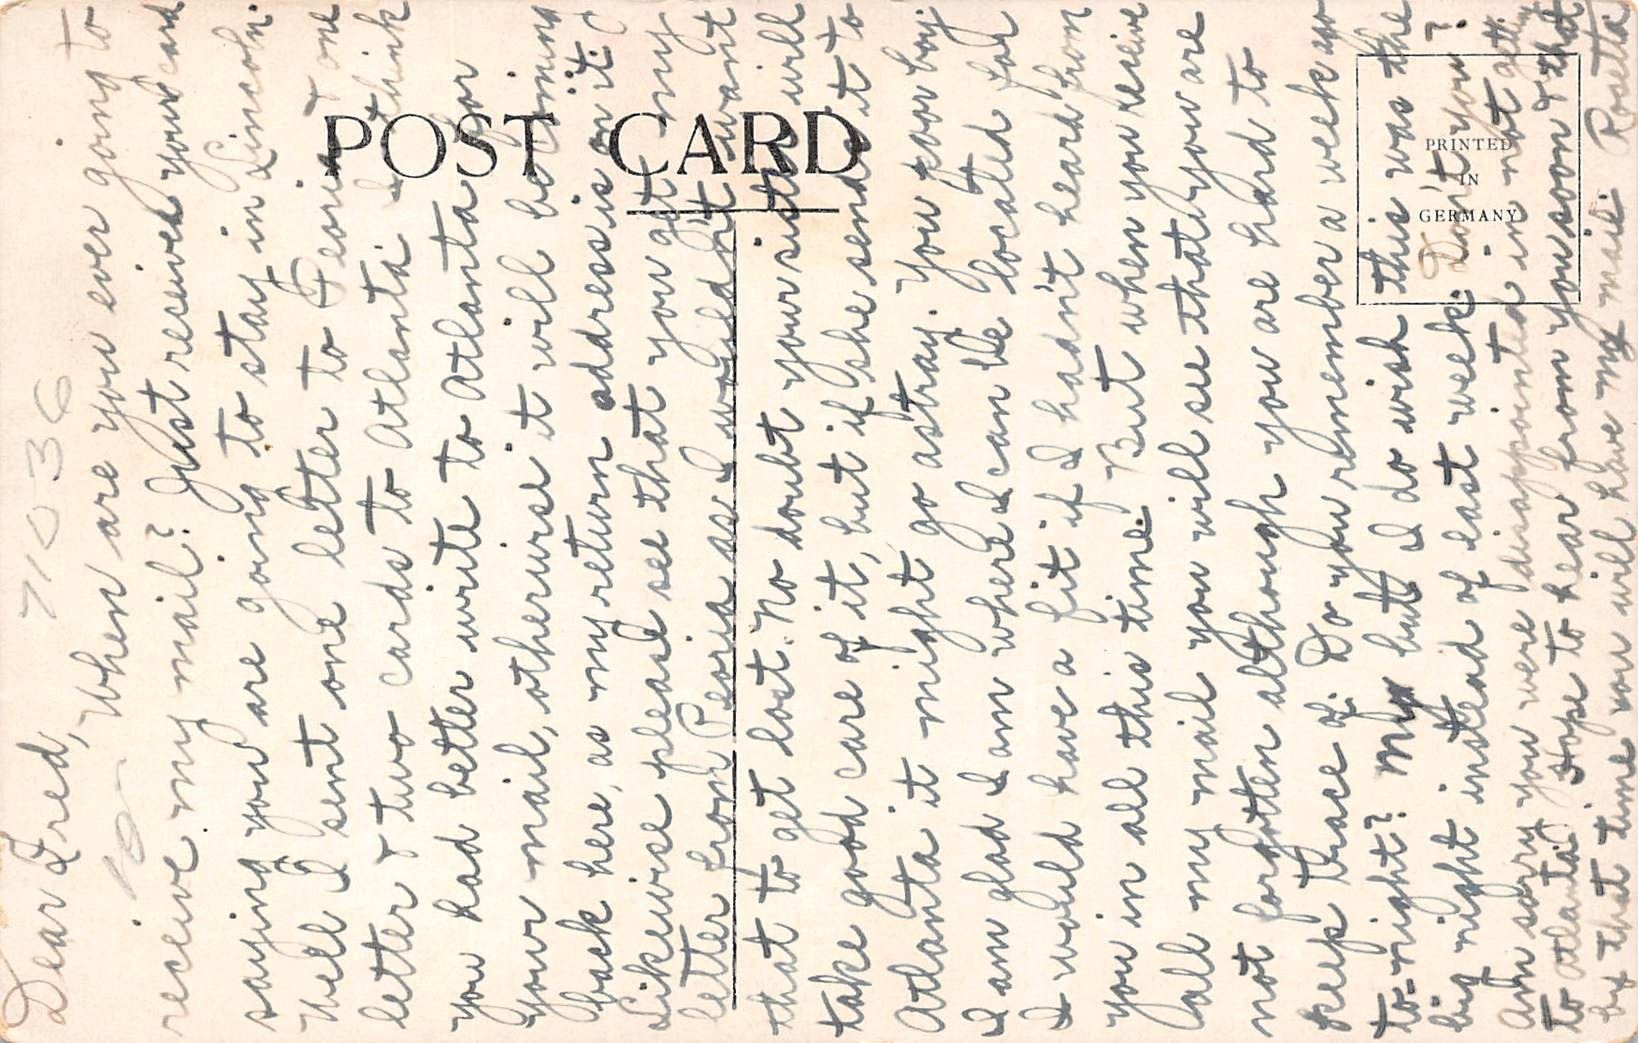 POST CARD
PRINTED
IN
GERMANY
71036
10-
Dear Fred,
When are you ever going to
receive my mail? Just received your card
saying you are going to stay in Lincoln.
Well I sent one letter to Peoria & one
letter & two cards to Atlanta. I think
you had better write to Atlanta for
your mail, otherwise it will be coming
back here, as my return address is on it.
Likewise please see that you get my
letter from Peoria as I wouldn't want
that to get lost. No doubt your sister will
take good care of it, but if she sends it to
Atlanta it might go astray. You poor boy
I am glad I am where I can be located for
I would have a fit if I hadn't heard from
you in all this time. But when you receive
all my mail you will see that you are
not forgotten although you are hard to
keep trace of. Do you remember a week ago
to-night? My but I do wish this was the
big night instead of last week. Don't you?
Am sorry you were disappointed in not getting
to Atlanta. Hope to hear from you soon & that
by that time you will have my mail. Rosetta